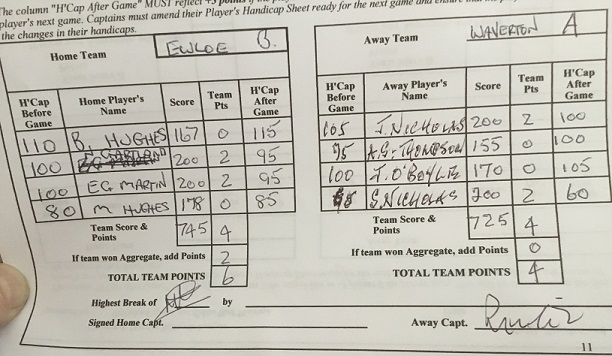 The column "H'Cap After Game" MUST reflect +5 points if the
player's next game. Captains must amend their Player's Handicap Sheet ready for the next game and ensure
the changes in their handicaps.
Home Team EWLOE B.
H'Cap Before Game Home Player's Name Score Team Pts H'Cap After Game
110 B. HUGHES 167 0 115
100 200 2 95
100 EG. MARTIN 200 2 95
80 M HUGHES 178 0 85
Team Score & Points 745 4
If team won Aggregate, add Points 2
TOTAL TEAM POINTS 6
Highest Break of by
Signed Home Capt.
Away Team WAVERTON A
H'Cap Before Game Away Player's Name Score Team Pts H'Cap After Game
105 J. NICHOLAS 200 2 100
95 A.G. THOMPSON 155 0 100
100 J. O'BOYLE 170 0 105
S. NICHOLAS 200 2 60
Team Score & Points 725 4
If team won Aggregate, add Points 0
TOTAL TEAM POINTS 4
Away Capt.
11